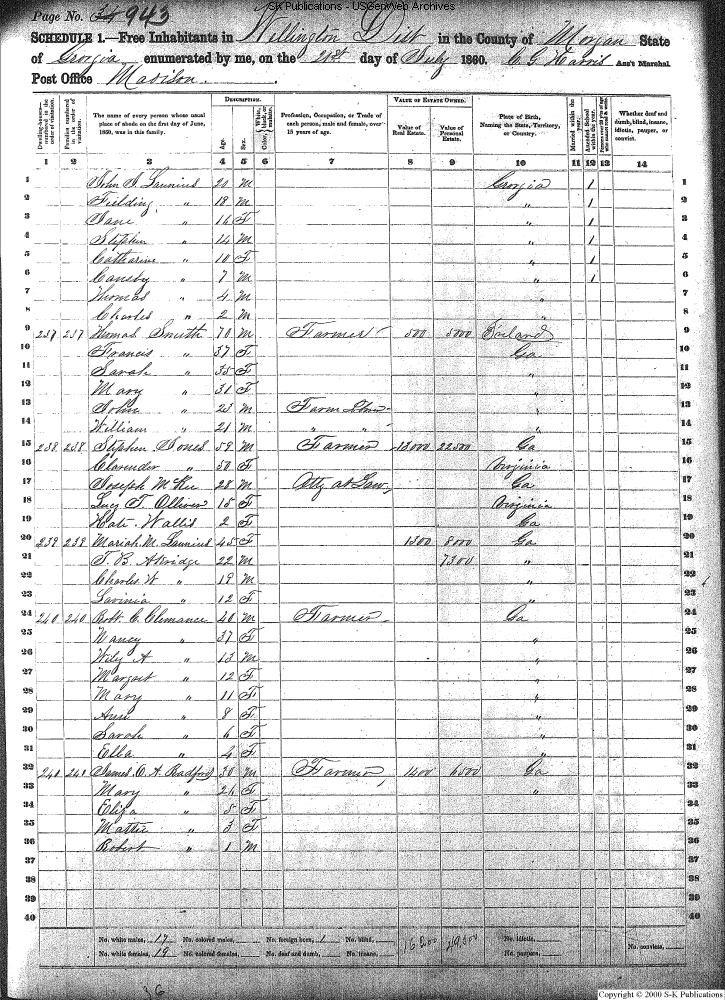 S-K Publications - USGenWeb Archives
Page No. 34 943
SCHEDULE 1.—Free Inhabitants in Wellington Dist in the County of Morgan State
of Georgia enumerated by me, on the 21st day of July 1860. C G Harris Ass't Marshal.
Post Office Madison.
Dwelling-houses—numbered in the order of visitation.
Families numbered in the order of visitation.
The name of every person whose usual place of abode on the first day of June, 1860, was in this family.
DESCRIPTION.
Age.
Sex.
Color, White, black, or mulatto.
Profession, Occupation, or Trade of each person, male and female, over 15 years of age.
VALUE OF ESTATE OWNED.
Value of Real Estate.
Value of Personal Estate.
Place of Birth, Naming the State, Territory, or Country.
Married within the year.
Attended School within the year.
Whether deaf and dumb, blind, insane, idiotic, pauper, or convict.
1 2 3 4 5 6 7 8 9 10 11 12 13 14
1 John S. Launius 20 M Georgia 1 1
2 Fielding " 18 M " 1 2
3 Jane " 16 F " 1 3
4 Stephen " 14 M " 1 4
5 Catharine " 10 F " 1 5
6 Cansby " 7 M " 1 6
7 Thomas " 4 M " 7
8 Charles " 2 M " 8
9 237 237 Thomas Smith 70 M Farmer 500 5000 9
10 Francis " 37 F Ga 10
11 Sarah " 35 F " 11
12 Mary " 31 F " 12
13 John " 23 M Farm " 13
14 William " 21 M " " " 14
15 238 238 Stephen Jones 59 M Farmer 13000 22500 Ga 15
16 Clarender " 50 F Virginia 16
17 Joseph M Kee 28 M Atty at Law Ga 17
18 Lucy T. Olliver 15 F Virginia 18
19 Kate Wallis 2 F Ga 19
20 239 239 Mariah M. Launius 45 F 1300 8000 Ga 20
21 T. B. Atkridge 22 M 7300 " 21
22 Charles W " 19 M " 22
23 Lavinia " 12 F " 23
24 240 240 Robt C. Climance 40 M Farmer Ga 24
25 Nancy " 37 F " 25
26 Wily A " 13 M " 26
27 Margaet " 12 F " 27
28 Mary " 11 F " 28
29 Ann " 8 F " 29
30 Sarah " 6 F " 30
31 Elba " 4 F " 31
32 241 241 James C. A. Radford 30 M Farmer 1400 6000 Ga 32
33 Mary " 26 F " 33
34 Eliza " 5 F 34
35 Mattie " 3 F 35
36 Robert " 1 M 36
37 37
38 38
39 39
40 40
No. white males, 17 No. colored males, No. foreign born, 1 No. blind, 16200 No. idiotic, No. convicts,
No. white females, 19 No. colored females, No. deaf and dumb, No. insane, No. paupers,
36
Copyright © 2000 S-K Publications